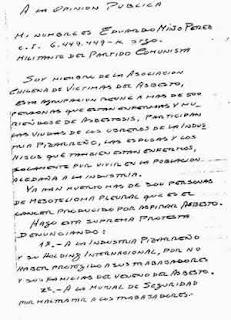 A LA OPINION PUBLICA
MI NOMBRE ES EDUARDO MIÑO PEREZ
C.I. 6.449.449-K
MILITANTE DEL PARTIDO COMUNISTA
SOY MIEMBRO DE LA ASOCIACION
CHILENA DE VICTIMAS DEL ASBESTO,
ESTA AGRUPACION REUNE A MAS DE 500
PERSONAS QUE ESTAN ENFERMAS Y MU-
RIENDOSE DE ASBESTOSIS, PARTICIPAN
LAS VIUDAS DE LOS OBREROS DE LA INDUS
TRIA PIZARREÑO, LAS ESPOSAS Y LOS
HIJOS QUE TAMBIEN ESTAN ENFERMOS,
SOLAMENTE POR VIVIR EN LA POBLACION
ALEDAÑA A LA INDUSTRIA.
YA HAN MUERTO MAS DE 300 PERSONAS
DE MESOTELIOMA PLEURAL QUE ES EL
CANCER PRODUCIDO POR ASPIRAR ASBESTO.
HAGO ESTA SUPREMA PROTESTA
DENUNCIANDO:
1º.- A LA INDUSTRIA PIZARREÑO
Y SU HOLDING INTERNACIONAL, POR NO
HABER PROTEGIDO A SUS TRABAJADORES
Y SUS FAMILIAS DEL VENENO DEL ASBESTO.
2º.- A LA MUTUAL DE SEGURIDAD
POR MALTRATAR A LOS TRABAJADORES.